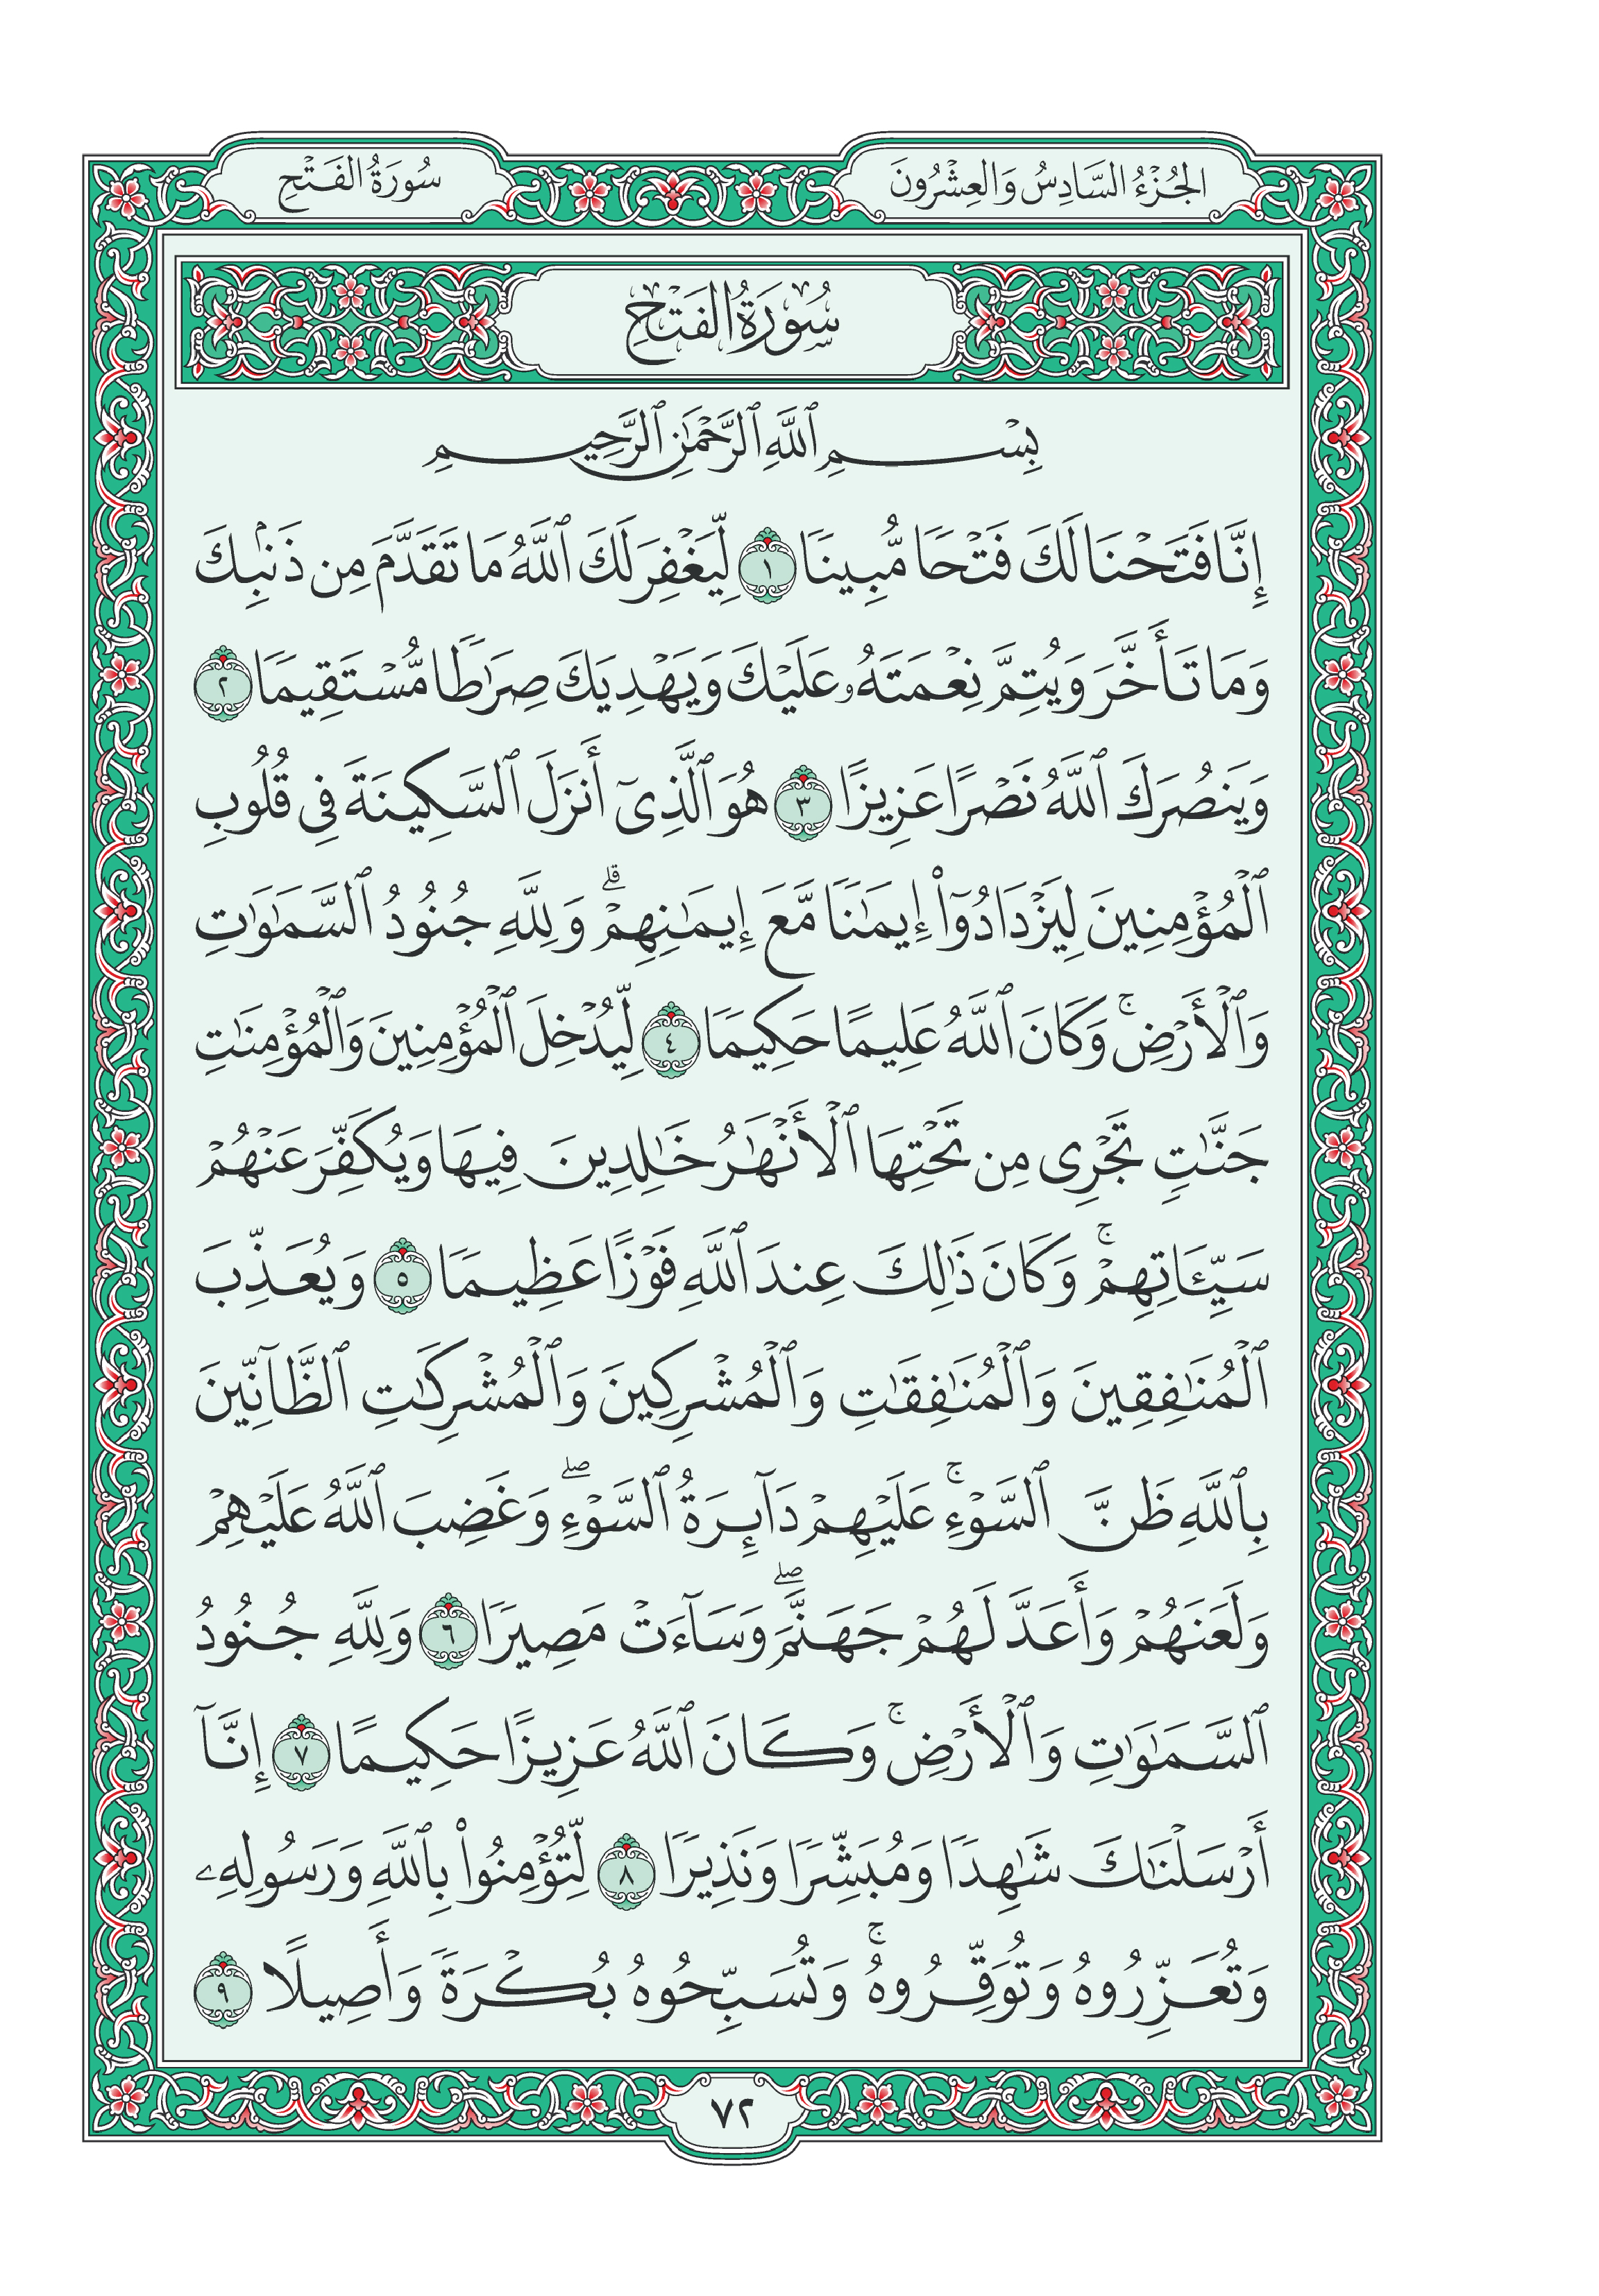 الجُزْءُ السَّادِسُ وَالعِشْرُونَ
سُورَةُ الفَتْحِ
سُورَةُ الفَتْحِ
بِسْمِ ٱللَّهِ ٱلرَّحْمَٰنِ ٱلرَّحِيمِ
إِنَّا فَتَحْنَا لَكَ فَتْحًا مُّبِينًا ١ لِّيَغْفِرَ لَكَ ٱللَّهُ مَا تَقَدَّمَ مِن ذَنۢبِكَ
وَمَا تَأَخَّرَ وَيُتِمَّ نِعْمَتَهُۥ عَلَيْكَ وَيَهْدِيَكَ صِرَٰطًا مُّسْتَقِيمًا ٢
وَيَنصُرَكَ ٱللَّهُ نَصْرًا عَزِيزًا ٣ هُوَ ٱلَّذِىٓ أَنزَلَ ٱلسَّكِينَةَ فِى قُلُوبِ
ٱلْمُؤْمِنِينَ لِيَزْدَادُوٓا۟ إِيمَٰنًا مَّعَ إِيمَٰنِهِمْ ۗ وَلِلَّهِ جُنُودُ ٱلسَّمَٰوَٰتِ
وَٱلْأَرْضِ ۚ وَكَانَ ٱللَّهُ عَلِيمًا حَكِيمًا ٤ لِّيُدْخِلَ ٱلْمُؤْمِنِينَ وَٱلْمُؤْمِنَٰتِ
جَنَّٰتٍ تَجْرِى مِن تَحْتِهَا ٱلْأَنْهَٰرُ خَٰلِدِينَ فِيهَا وَيُكَفِّرَ عَنْهُمْ
سَيِّـَٔاتِهِمْ ۚ وَكَانَ ذَٰلِكَ عِندَ ٱللَّهِ فَوْزًا عَظِيمًا ٥ وَيُعَذِّبَ
ٱلْمُنَٰفِقِينَ وَٱلْمُنَٰفِقَٰتِ وَٱلْمُشْرِكِينَ وَٱلْمُشْرِكَٰتِ ٱلظَّآنِّينَ
بِٱللَّهِ ظَنَّ ٱلسَّوْءِ ۚ عَلَيْهِمْ دَآئِرَةُ ٱلسَّوْءِ ۖ وَغَضِبَ ٱللَّهُ عَلَيْهِمْ
وَلَعَنَهُمْ وَأَعَدَّ لَهُمْ جَهَنَّمَ ۖ وَسَآءَتْ مَصِيرًا ٦ وَلِلَّهِ جُنُودُ
ٱلسَّمَٰوَٰتِ وَٱلْأَرْضِ ۚ وَكَانَ ٱللَّهُ عَزِيزًا حَكِيمًا ٧ إِنَّآ
أَرْسَلْنَٰكَ شَٰهِدًا وَمُبَشِّرًا وَنَذِيرًا ٨ لِّتُؤْمِنُوا۟ بِٱللَّهِ وَرَسُولِهِۦ
وَتُعَزِّرُوهُ وَتُوَقِّرُوهُ ۚ وَتُسَبِّحُوهُ بُكْرَةً وَأَصِيلًا ٩
٧٢